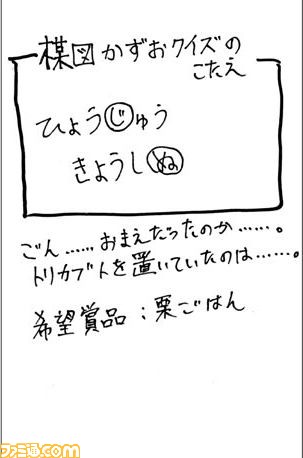 楳図かずおクイズの
こたえ
ひょうじゅう
きょうしぬ
ごん……おまえだったのか……。
トリカブトを置いていたのは……。
希望賞品:栗ごはん
ファミ通.com